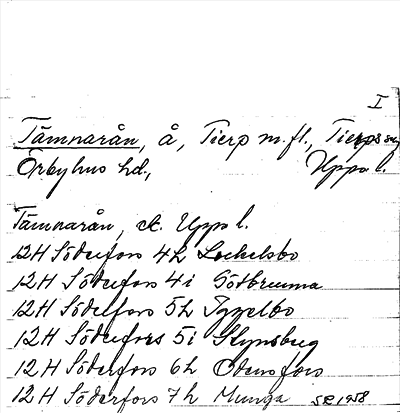 I
Tämnarån, å, Tierp m.fl., Tierps sn
Örbyhus hd., Upps l.
Tämnarån, å. Upps l.
12H Söderfors 4h Lockelsbo
12H Söderfors 4i Götbrunna
12H Söderfors 5h Tyggelbo
12H Söderfors 5i Strynsberg
12H Söderfors 6h Odensfors
12H Söderfors 7h Munga SR 1958